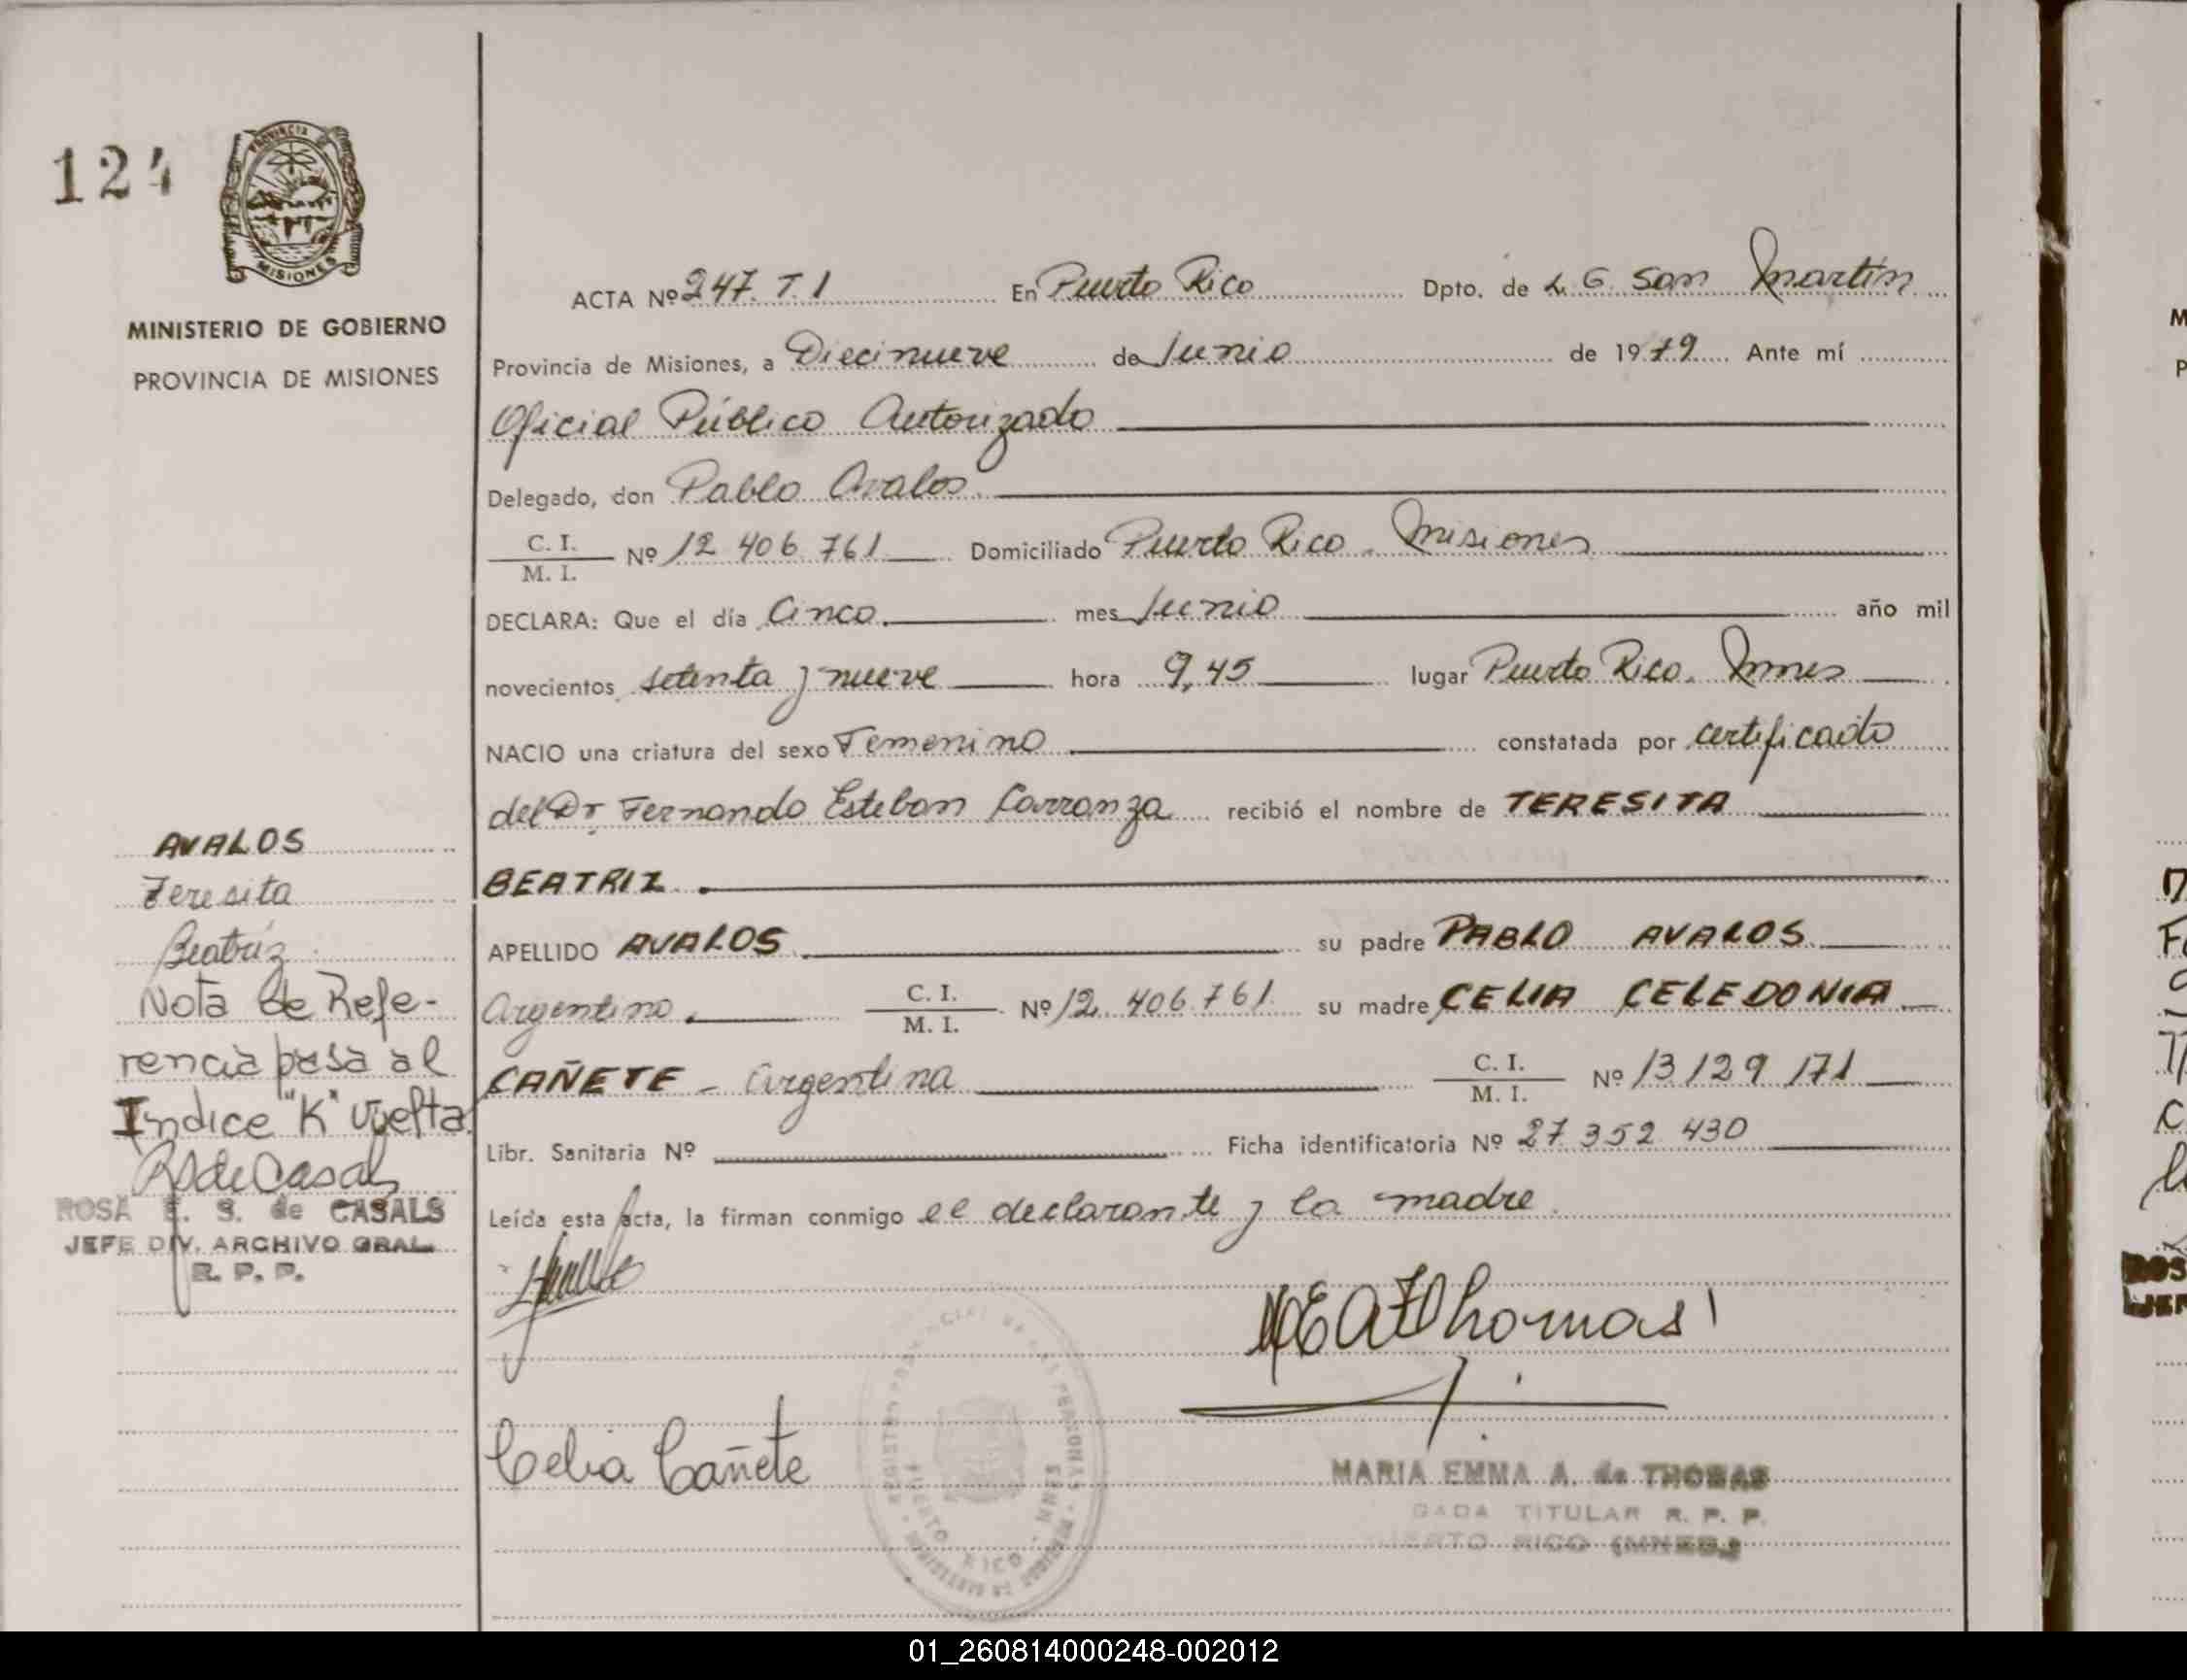 124
PROVINCIA
MISIONES
MINISTERIO DE GOBIERNO
PROVINCIA DE MISIONES
ACTA Nº 247. T. 1 En Puerto Rico Dpto. de L. G. San Martín
Provincia de Misiones, a Diecinueve de Junio de 1979 Ante mí
Oficial Público Autorizado
Delegado, don Pablo Avalos.
C. I.
M. I. Nº 12 406 761 Domiciliado Puerto Rico. Misiones
DECLARA: Que el día Cinco. mes Junio año mil
novecientos setenta y nueve hora 9,45 lugar Puerto Rico. Mnes
NACIO una criatura del sexo Femenino constatada por certificado
del Dr. Fernando Esteban Carranza recibió el nombre de TERESITA
BEATRIZ.
APELLIDO AVALOS su padre PABLO AVALOS
Argentino. C. I.
M. I. Nº 12. 406.761 su madre CELIA CELEDONIA
CAÑETE - Argentina C. I.
M. I. Nº 13 129 171
Libr. Sanitaria Nº Ficha identificatoria Nº 27 352 430
Leída esta acta, la firman conmigo el declarante y la madre.
AVALOS
Teresita
Beatríz
Nota de Refe-
rencia pasa al
Indice "K" vuelta.
RSdeCasals
ROSA E. S. de CASALS
JEFE DIV. ARCHIVO GRAL.
R. P. P.
MEAThomas
Celia Cañete
PUERTO RICO - MNES
MARIA EMMA A. de THOMAS
GADA TITULAR R. P. P.
PUERTO RICO (MNES.)
01_260814000248-002012